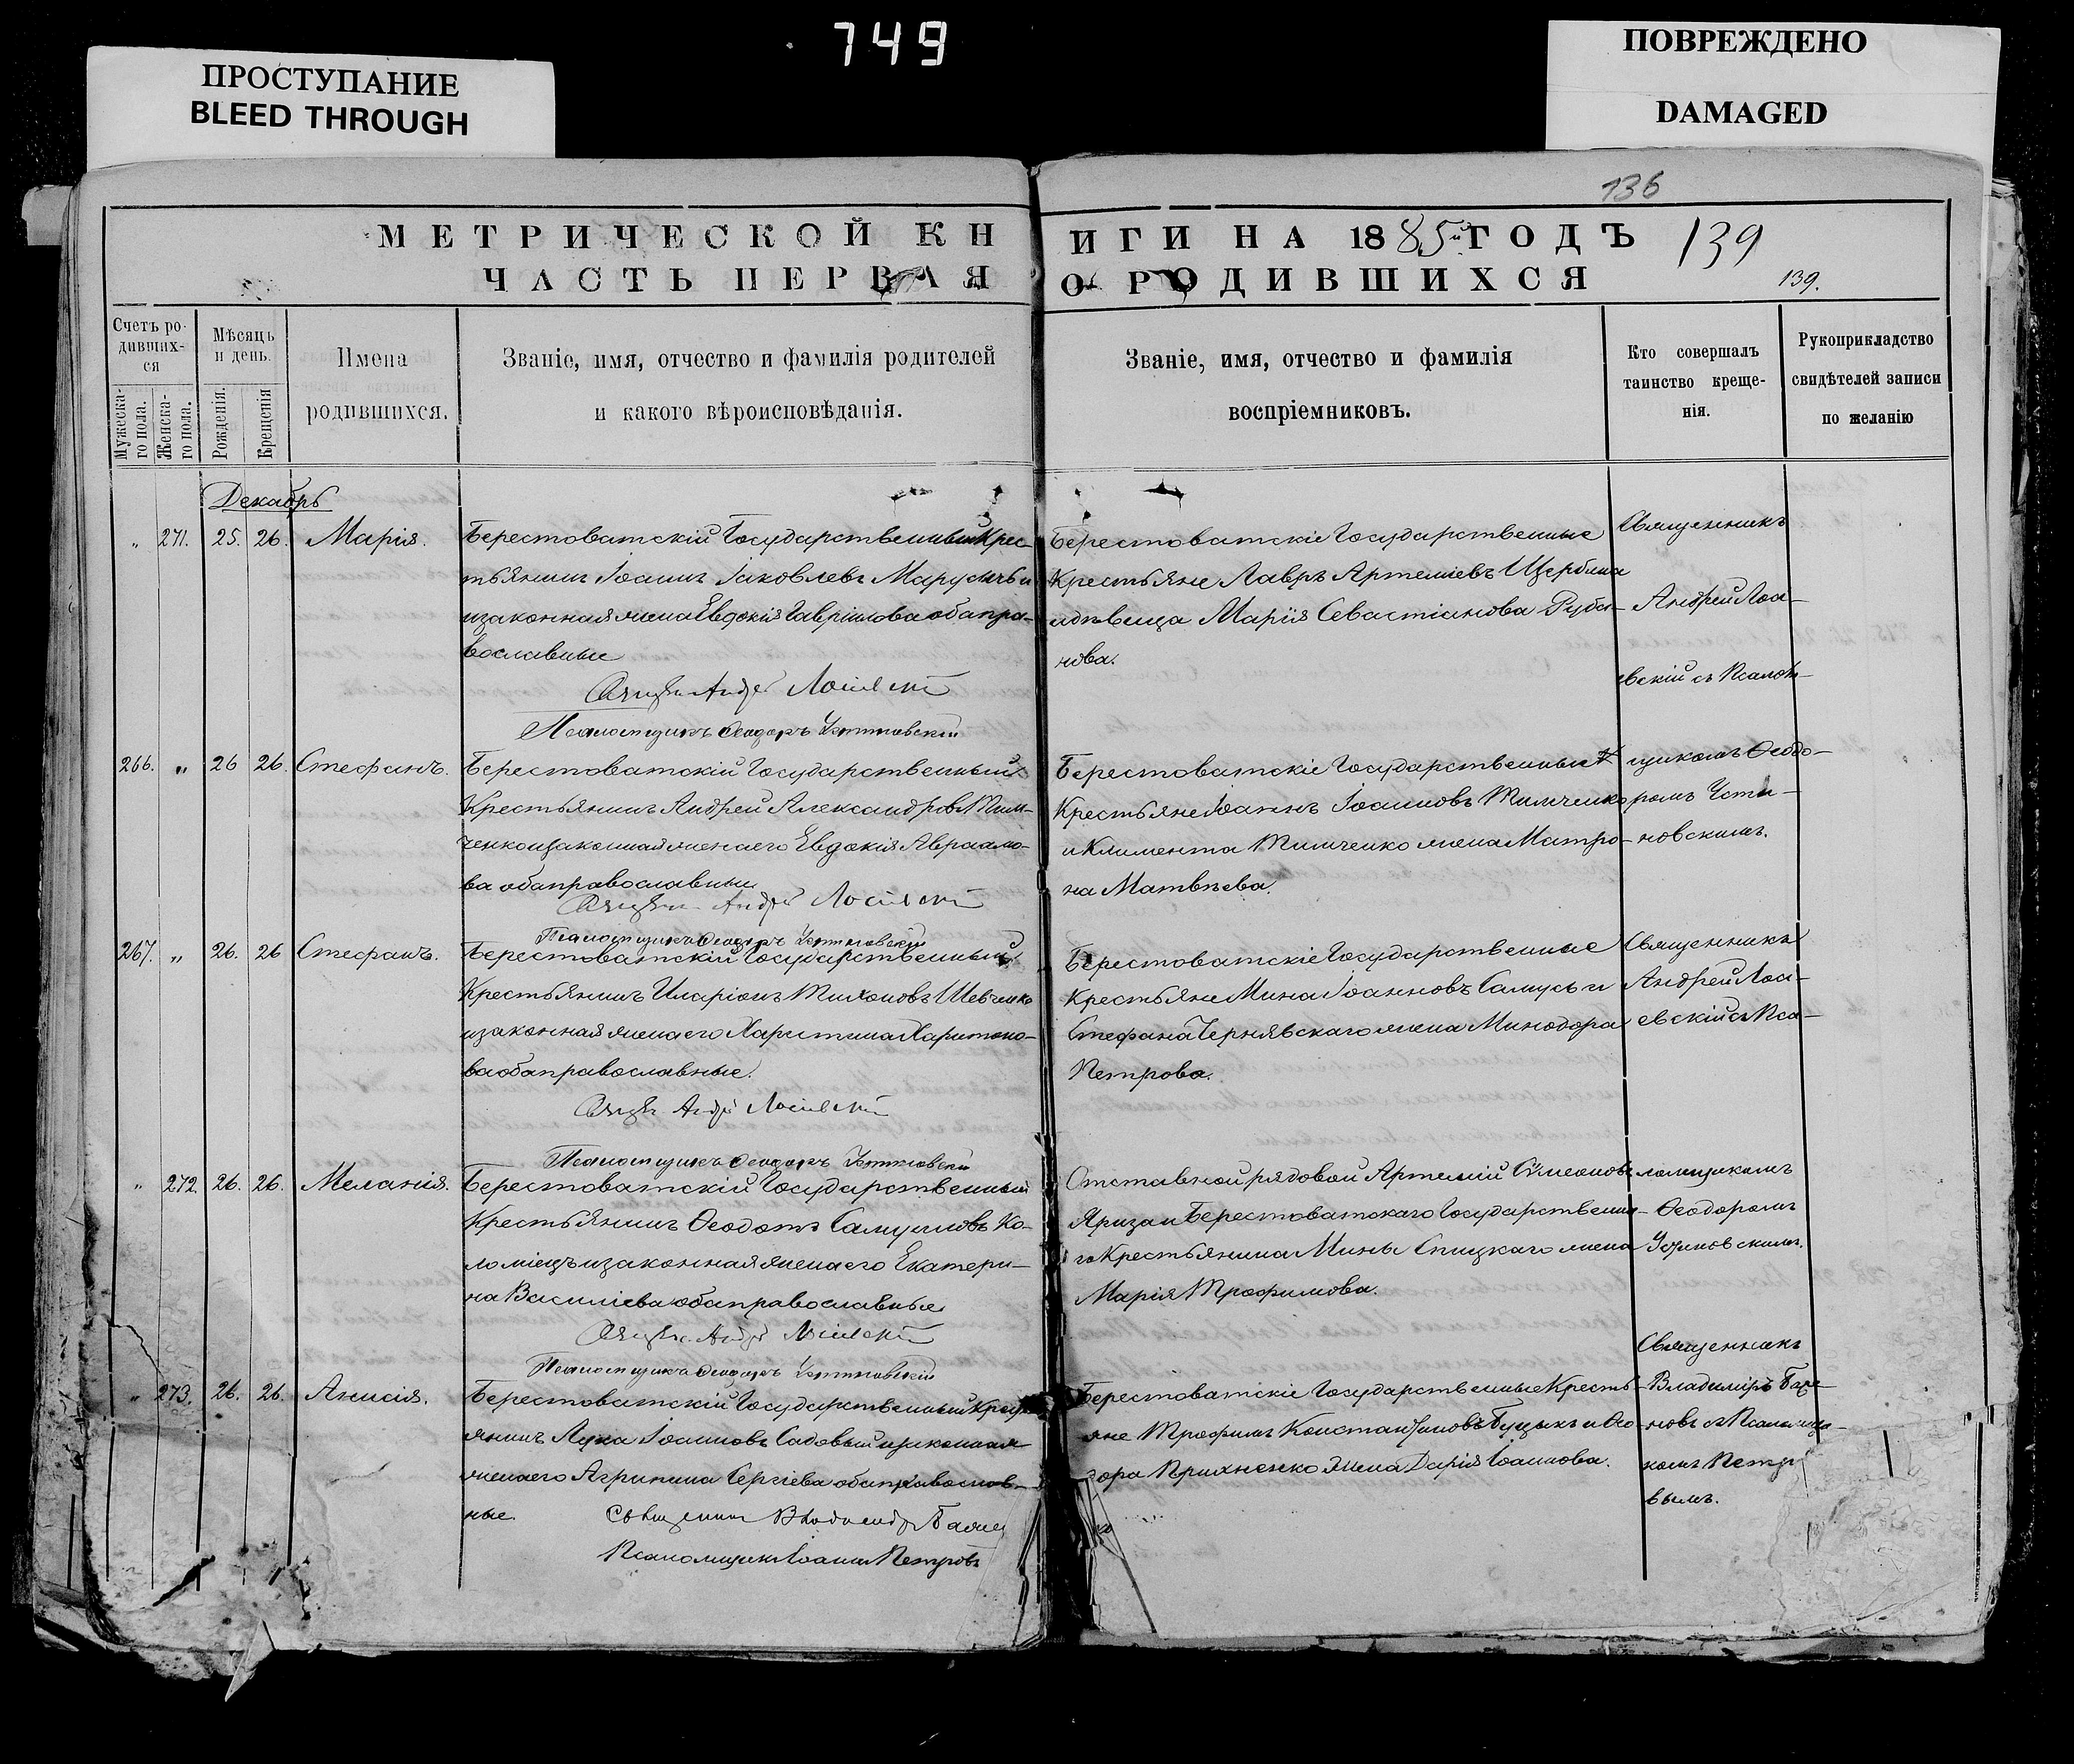 749
ПРОСТУПАНИЕ
BLEED THROUGH
ПОВРЕЖДЕНО
DAMAGED
136
МЕТРИЧЕСКОЙ КНИГИ НА 1885й ГОДЪ
139
ЧАСТЬ ПЕРВАЯ О РОДИВШИХСЯ
139.
Счетъ ро-
дивших-
ся
Мужеска-
го пола.
Женска-
го пола.
Мѣсяцъ
и день.
Рожденія.
Крещенія
Имена
родившихся.
Званіе, имя, отчество и фамилія родителей
и какого вѣроисповѣданія.
Званіе, имя, отчество и фамилія
воспріемниковъ.
Кто совершалъ
таинство креще-
нія.
Рукоприкладство
свидѣтелей записи
по желанію
Декабрь
„ 271. 25. 26. Марія.
Берестоватскій Государственный Крес-
тьянинъ Іоаннъ Іаковлевъ и
законная жена Евдокія Гавріилова оба пра-
вославные
Андрей
Псаломщикъ Ѳеодоръ Устиновскій
Берестоватскіе Государственные
Крестьяне Лавръ Артеміевъ Щербина
и дѣвица Марія Севастіанова Руба-
нова.
Священникъ
Андрей Лоси-
евскій съ Псалом-
щикомъ Ѳеодо-
ромъ Усти-
новскимъ.
266. „ 26 26. Стефанъ.
Берестоватскій Государственный
Крестьянинъ Андрей Александровъ Тим-
ченко и законная жена его Евдокія Авраамо-
ва оба православные
Андрей
Псаломщикъ Ѳеодоръ Устиновскій
Берестоватскіе Государственные
Крестьяне Іоаннъ Іоанновъ Тимченко
и Климента Тимченко жена Матро-
на Матвѣева.
267. „ 26. 26 Стефанъ.
Берестоватскій Государственный
Крестьянинъ Иларіонъ Тихоновъ Шевченко
и законная жена его Харистина Харитоно-
ва оба православные.
Андрей
Псаломщикъ Ѳеодоръ Устиновскій
Берестоватскіе Государственные
Крестьяне Мина Іоанновъ Самусь и
Стефана Чернявскаго жена Минодора
Петрова.
Священникъ
Андрей Лоси-
евскій съ Пса-
ломщикомъ
Ѳеодоромъ
Устиновскимъ.
„ 272. 26. 26. Меланія.
Берестоватскій Государственный
Крестьянинъ Ѳеодотъ Самуиловъ Ко-
ломіецъ и законная жена его Екатери-
на Василіева оба православные
Андрей
Псаломщикъ Ѳеодоръ Устиновскій
Отставной рядовой Артемій Симеоновъ
Яриза и Берестоватскаго Государственна-
го Крестьянина Мины Спицкаго жена
Марія Трофимова.
„ 273. 26. 26. Анисія.
Берестоватскій Государственный Кресть
янинъ Лука Іоанновъ Садовый и законная
жена его Агрипина Сергіева оба православ-
ные.
Священникъ
Псаломщикъ Іоаннъ Петровъ
Берестоватскіе Государственные Кресть-
яне Трофимъ Константиновъ и Ѳео-
дора Прихненко жена Дарія Іоаннова.
Священникъ
Владиміръ
новъ съ Псаломщи-
комъ Петро
вымъ.